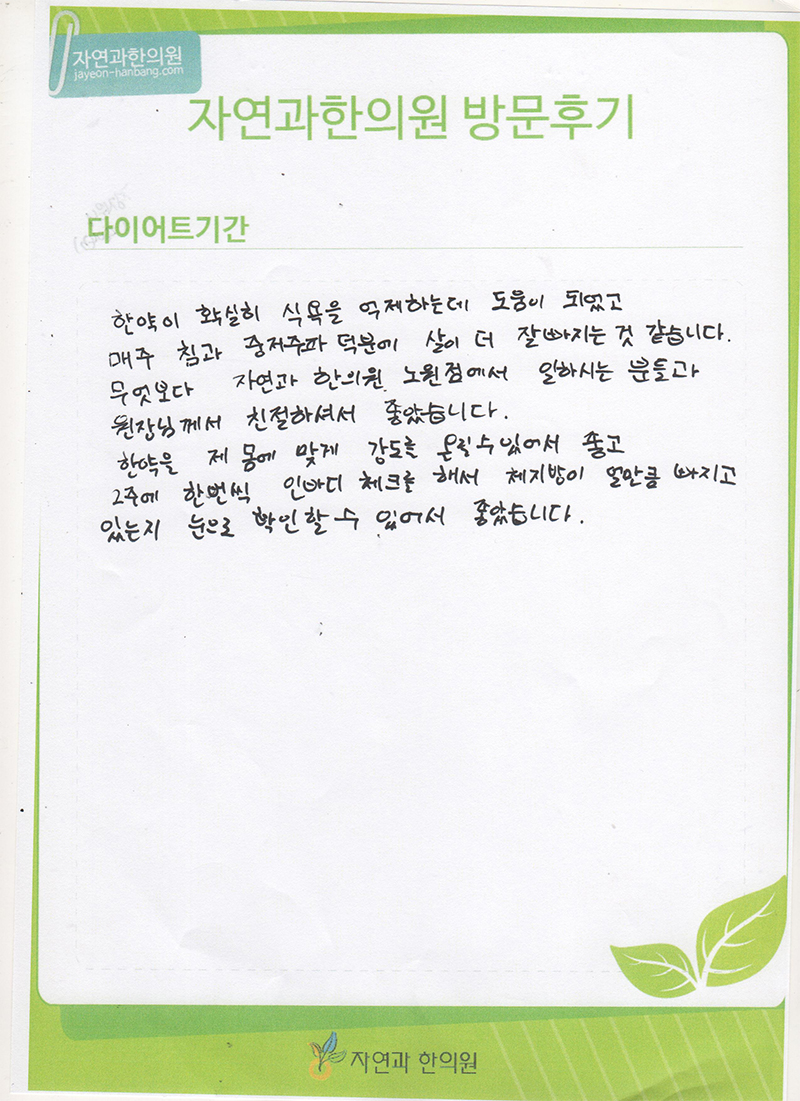 자연과한의원
jayeon-hanbang.com
자연과한의원 방문후기
다이어트기간
한약이 확실히 식욕을 억제하는데 도움이 되었고
매주 침과 중저주파 덕분에 살이 더 잘빠지는 것 같습니다.
무엇보다 자연과 한의원 노원점에서 일하시는 분들과
원장님께서 친절하셔서 좋았습니다.
한약을 제 몸에 맞게 강도를 올릴 수 있어서 좋고
2주에 한번씩 인바디 체크를 해서 체지방이 얼만큼 빠지고
있는지 눈으로 확인할 수 있어서 좋았습니다.
자연과 한의원